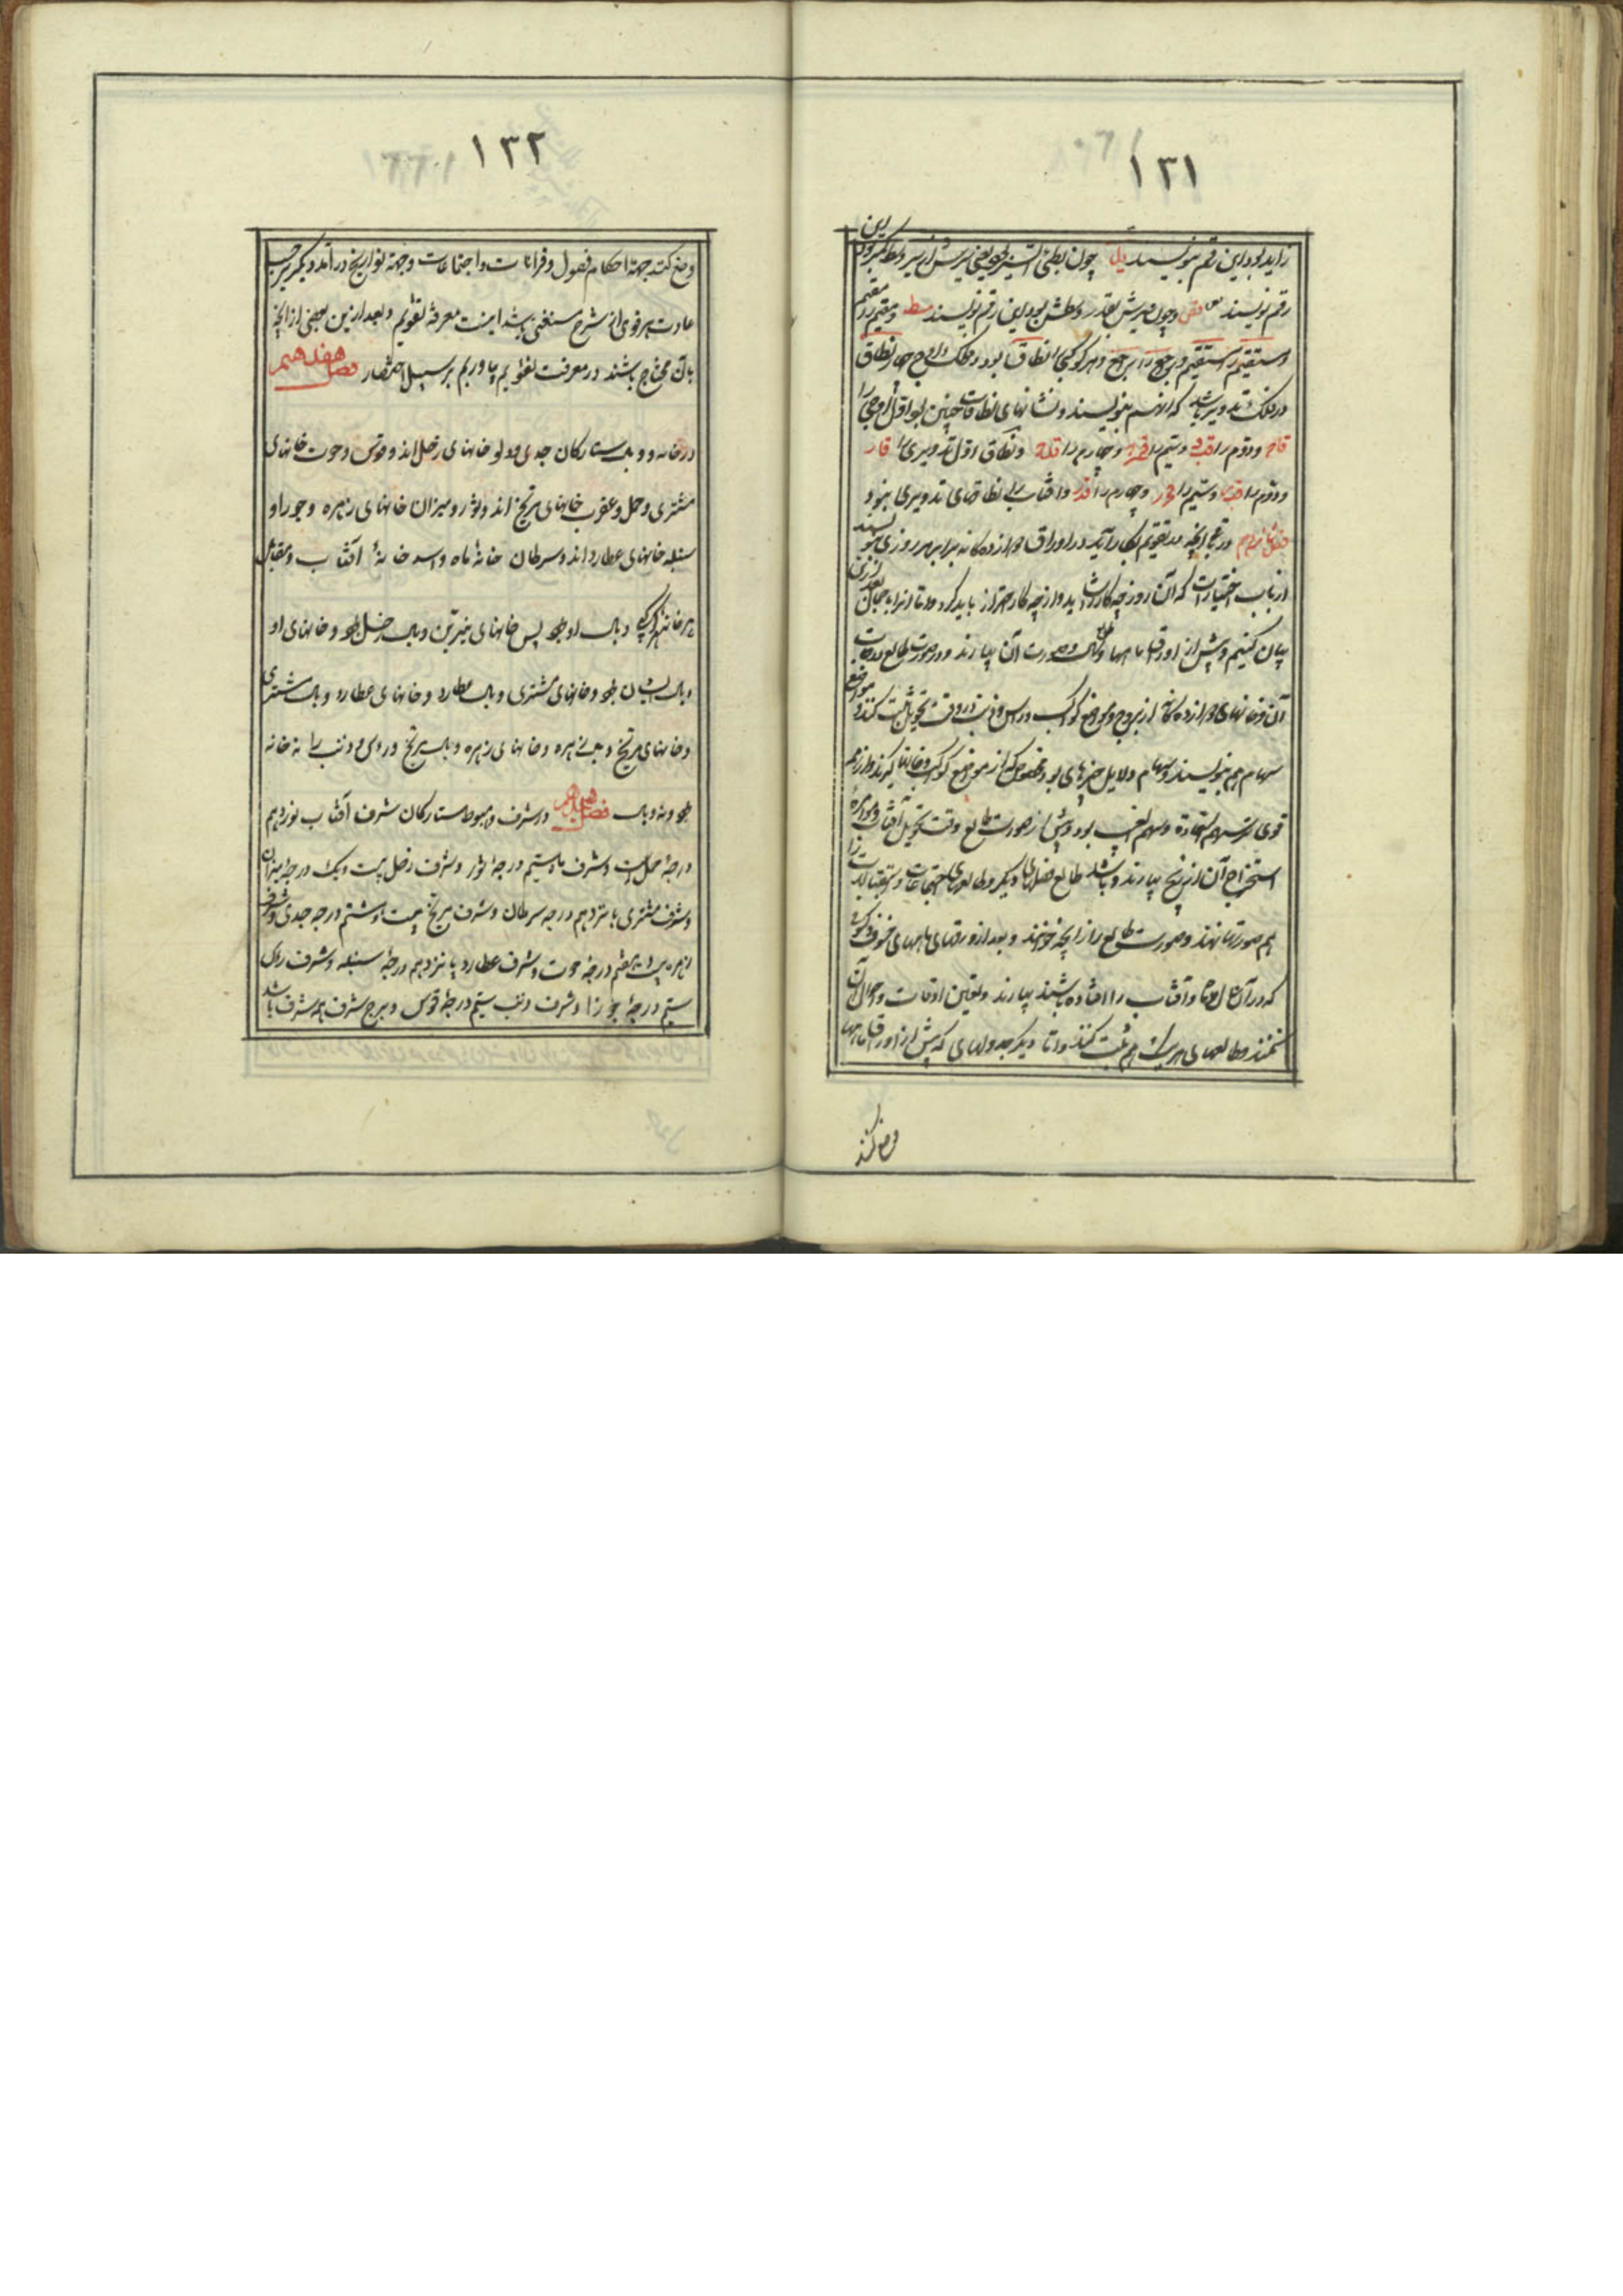 ۱۳۱
زاید بود این رقم بنویسند یل چون بطئ السیر بود یعنی سیرش از سیر وسط کمتر بود این
رقم نویسند و چون سیرش بقدر وسطش بود این رقم نویسند سط و مقیم را مقیم
و مستقیم را مستقیم و راجع را راجع و هر کوکبی را نطاق بود در فلک اوج چهار نطاق
در فلک تدویر باشد که آنهم بنویسند و نشانهای نطاقات چنین بود اول اوجی را
و دوم را و سیم را و چهارم را و نطاق اول تدویری را قار
و دوم را و سیم را و چهارم را و آفتاب را نطاقهای تدویری نبود
فصل شانزدهم در آنچه در تقویم بکار آید در اوراق دوازده گانه برابر هر روزی بنویسند
از باب اختیارات که آن روز چه کار را شاید و از چه کار احتراز باید کرد و اما آنرا بعد ازین
بیان کنیم و پیش از اوراق ماهها طالع سال و صورت آن بیارند و در صورت طالع
آن و خانهای دوازده گانه از بروج و مواضع کواکب و راس و ذنب در وقت تحویل ثبت کنند و مواضع
سهام هم بنویسند و سهام دلایل چیزهای بود مخصوص که از مواضع کواکب و خانها گیرند و از همه
قوی تر سهم السعادة و سهم الغیب بود و پیش از صورت طالع وقت تحویل آفتاب و
استخراج آن از زیج بیارند و باشد که طالع فصلهای دیگر و طالعهای اجتماعات و استقبالات را
هم صورتها نهند و صورت طالع را زایچه خوانند و بعد از ورقهای ماهها خسوف و کسوف
که در آن سال ماه و آفتاب را افتاده باشند بیارند و تعیین اوقات و احوال آن
کنند و طالعهای هر یک هم ثبت کنند و اما دیگر جدولهای که پیش از اوراق ماهها
وضع کنند
۱۳۲
وضع کنند جهة احکام فصول و قرانات و اجتماعات و جهة تواریخ در آمد دیگر بر حسب
عادت هر قومی از شرح مستغنی باشد اینست معرفة تقویم و بعد ازین بعضی از آنچه
بآن محتاج باشند در معرفت تقویم بیاوریم بر سبیل اختصار فصل هفدهم
در خانه و وبال ستارگان جدی و دلو خانهای زحل اند و قوس و حوت خانهای
مشتری و حمل و عقرب خانهای مریخ اند و ثور و میزان خانهای زهره و جوزا و
سنبله خانهای عطارد اند و سرطان خانهٔ ماه و اسد خانهٔ آفتاب و مقابل
هر خانه هر کوکبی وبال او بود پس خانهای نیرین وبال زحل بود و خانهای او
وبال ایشان بود و خانهای مشتری وبال عطارد و خانهای عطارد وبال مشتری
و خانهای مریخ وبال زهره و خانهای زهره وبال مریخ و راس و ذنب را نه خانه
بود و نه وبال فصل هجدهم در شرف و هبوط ستارگان شرف آفتاب نوزدهم
درجهٔ حمل است و شرف ماه سیم درجهٔ ثور و شرف زحل بیست و یک درجهٔ میزان
و شرف مشتری پانزدهم درجه سرطان و شرف مریخ بیست و هشتم درجه جدی و شرف
زهره بیست و هفتم درجهٔ حوت و شرف عطارد پانزدهم درجهٔ سنبله و شرف راس
سیم درجهٔ جوزا و شرف ذنب سیم درجهٔ قوس و برج شرف همه شرف باشد